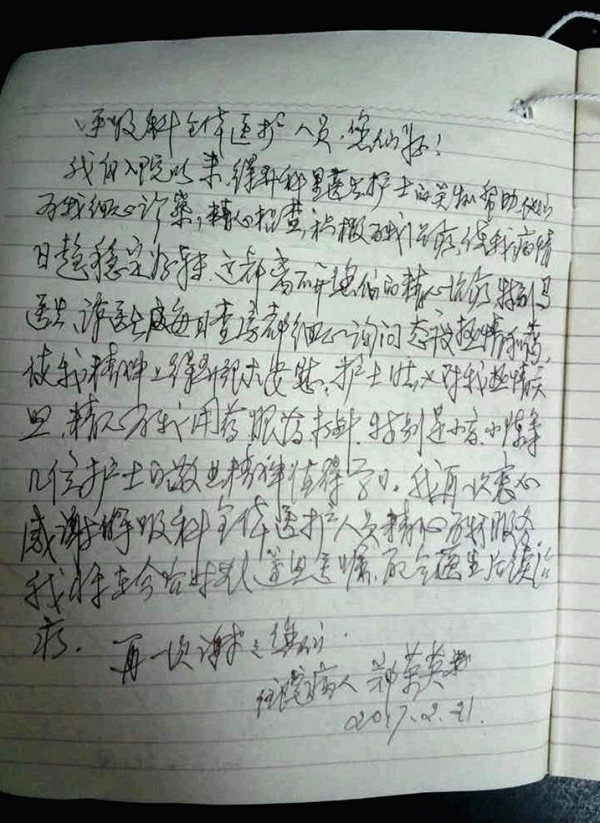 呼吸科全体医护人员您们好！
我自入院以来，得到科里医生护士的关心帮助，他们
为我细心诊察，精心检查，积极为我治疗，使我病情
日趋稳定好转，这都离不开您们的精心治疗，特别马
医生、谭医生每日查房都细心询问，态度热情和蔼，
使我精神上得到很大安慰，护士们对我热情关
，精心为我用药服药打针，特别是小 小陈等
几位护士的敬业精神值得学习。我再一次衷心
感谢呼吸科全体医护人员精心为我服务，
我将在今后时 遵照 嘱，配合医生后续治
疗。 再一次谢谢您们！
住院病人 英
2017.2.21.